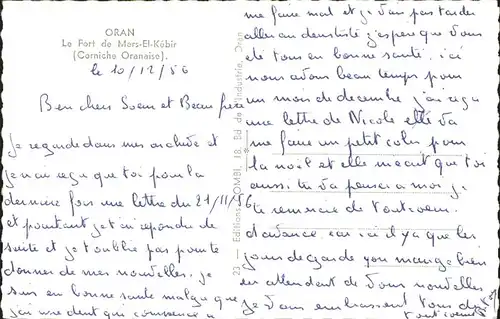 ORAN
Le Fort de Mers-El-Kébir
(Corniche Oranaise).
le 10/12/56
Bien chers Soeur et Beau frère
je regarde dans mes archive et
je n'ai reçu que toi pour la
dernière fois une lettre du 21/11/56
et pourtant je t'en répondu de
suite et je t'oublie pas pour te
donner de mes nouvelles. je
suis en bonne santé malgré que
j'ai une dent qui commence a
23 — Editions COMBI, 18, Bd de l'Industrie, Oran
me faire mal et je vais pas tarder
aller au dentiste j'espère que vous
été tous en bonne santé, ici
nous avons beau temps pour
un mois de décembre j'ai reçu
une lettre de Nicole elle va
me faire un petit colis pour
la noël et elle m'écrit que toi
aussi tu va penser a moi je
te remercie de tout coeur
d'avance car ici il y a que les
jours de garde qu'on mange bien
en attendant de vous nouvelles
je vous embrassent tous de
tout coeur